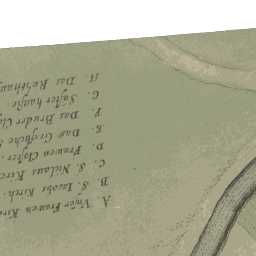 A. Vnser Frawen Kirc
B. S. Iacobs Kirch.
C. S. Niclaus Kirc
D. Frawen Closter.
E. Das Gräfliche S
F. Das Bruder Clo
G. Süster hauße
H. Das Rahthau